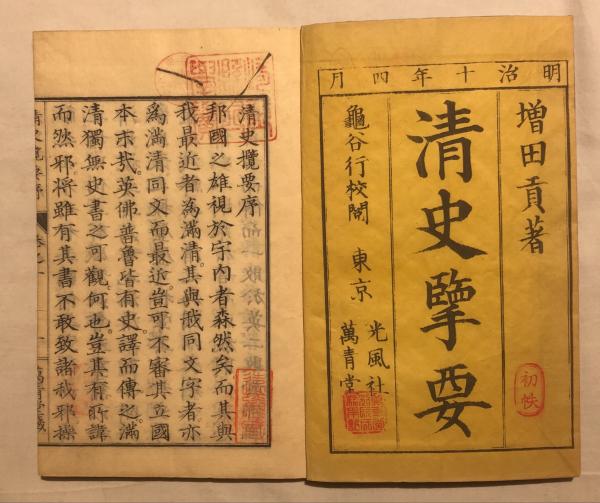 明治十年四月
增田貢著
清史擥要
初帙
龜谷行校閲 東京 光風社
萬青堂
清史攬要序
邦國之雄視於宇内者森然矣而其與
我最近者為滿清其與我同文字者亦
為滿清同文而最近豈可不審其立國
本末哉。英佛普魯皆有史譯而傳之。滿
清獨無史書之可觀。何也。豈其有所諱
而然邪。將雖有其書不敢致諸我邪。操